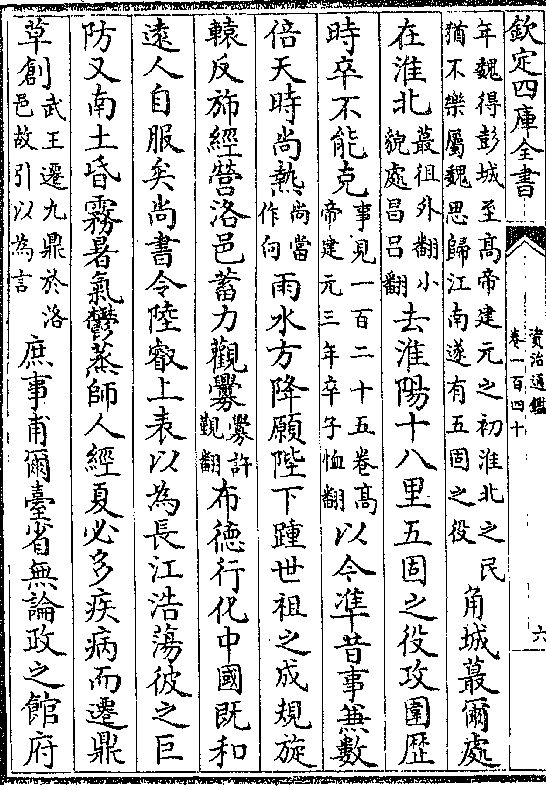 欽定四庫全書
資治通鑑
卷一百四十
六
年魏得彭城至高帝建元之初淮北之民
猶不樂屬魏思歸江南遂有五固之役
角城蕞爾處
在淮北
蕞徂外翻小
貌處昌呂翻
去淮陽十八里五固之役攻圍歷
時卒不能克
事見一百二十五卷高
帝建元三年卒子恤翻
以今準昔事兼數
倍天時尚熱
尚當
作向
雨水方降願陛下踵世祖之成規旋
轅反斾經營洛邑蓄力觀釁
釁許
覲翻
布德行化中國既和
遠人自服矣尚書令陸叡上表以為長江浩蕩彼之巨
防又南土昏霧暑氣鬱蒸師人經夏必多疾病而遷鼎
草創
武王遷九鼎於洛
邑故引以為言
庶事甫爾臺省無論政之館府